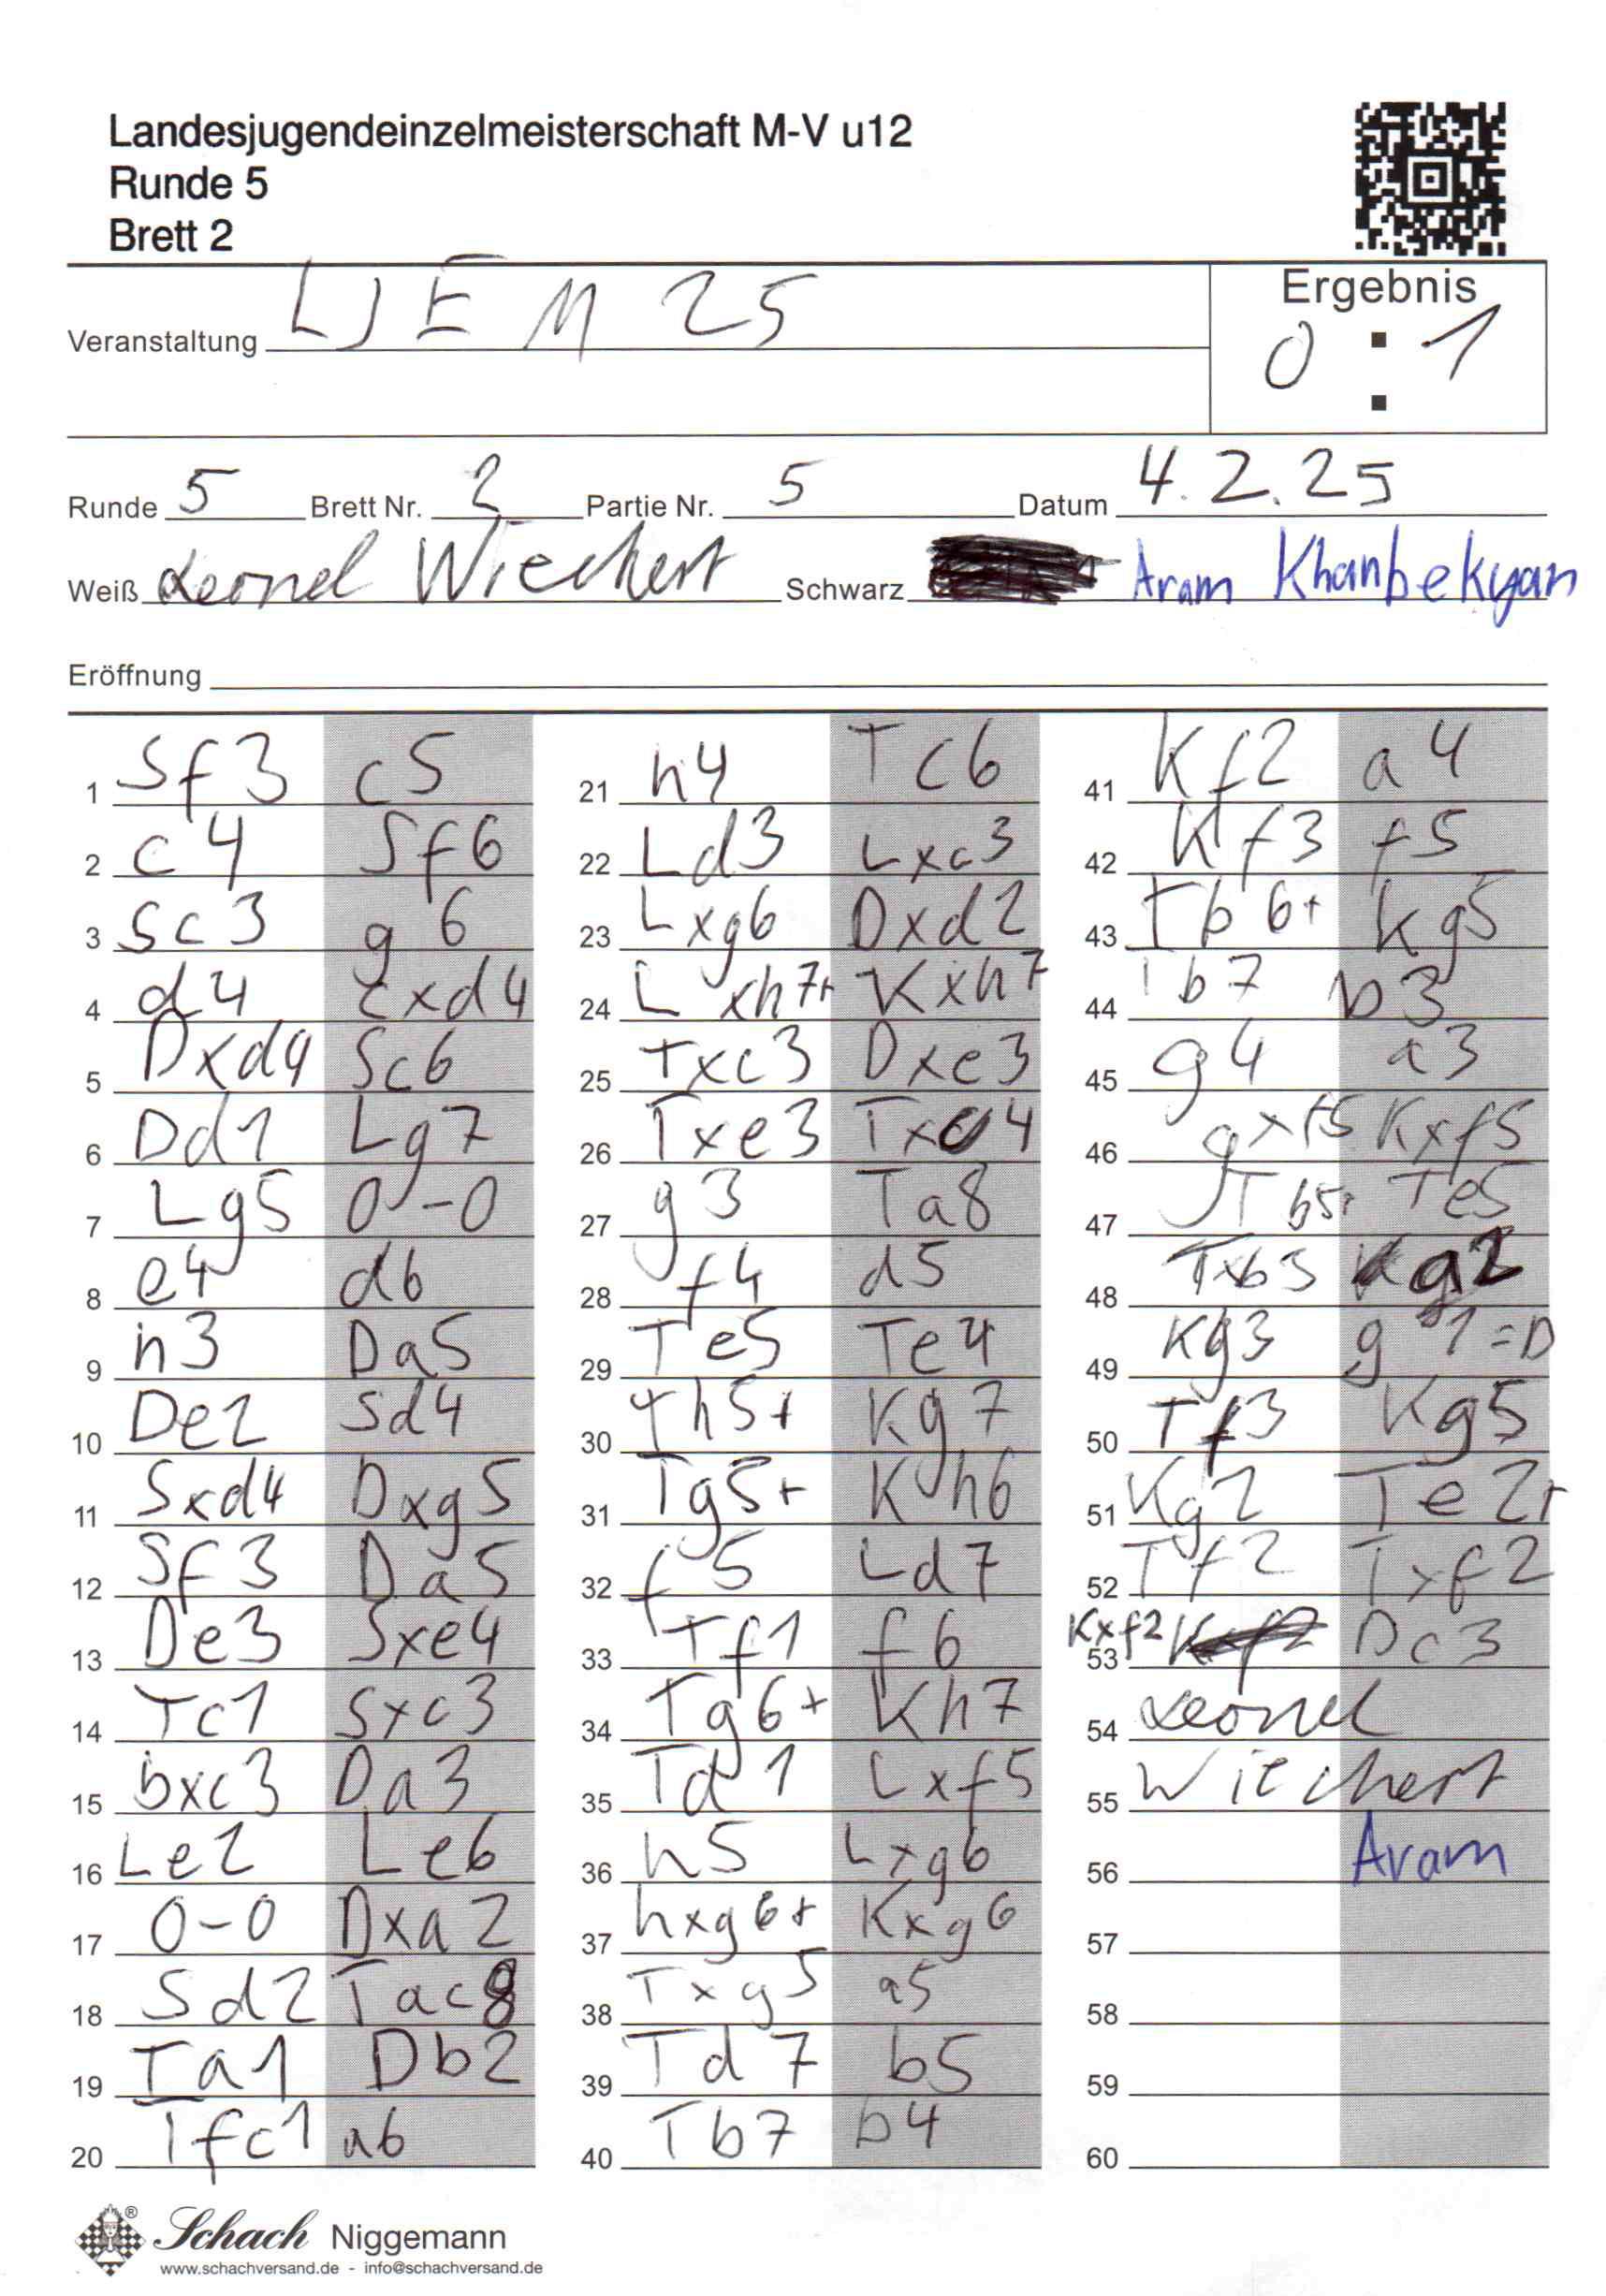 Landesjugendeinzelmeisterschaft M-V u12
Runde 5
Brett 2
Veranstaltung LJEM 25
Ergebnis
0 : 1
:
Runde 5 Brett Nr. 2 Partie Nr. 5 Datum 4.2.25
Weiß Leonel Wiechert Schwarz Aram Khanbekyan
Eröffnung
1 Sf3 c5
2 c4 Sf6
3 Sc3 g6
4 d4 cxd4
5 Dxd4 Sc6
6 Dd1 Lg7
7 Lg5 0-0
8 e4 d6
9 h3 Da5
10 De2 Sd4
11 Sxd4 Dxg5
12 Sf3 Da5
13 De3 Sxe4
14 Tc1 Sxc3
15 bxc3 Da3
16 Le2 Le6
17 0-0 Dxa2
18 Sd2 Tac8
19 Ta1 Db2
20 Tfc1 a6
21 h4 Tc6
22 Ld3 Lxc3
23 Lxg6 Dxd2
24 Lxh7+ Kxh7
25 Txc3 Dxe3
26 Txe3 Txc4
27 g3 Ta8
28 f4 d5
29 Te5 Te4
30 Th5+ Kg7
31 Tg5+ Kh6
32 f5 Ld7
33 Tf1 f6
34 Tg6+ Kh7
35 Td1 Lxf5
36 h5 Lxg6
37 hxg6+ Kxg6
38 Txg5 a5
39 Td7 b5
40 Tb7 b4
41 Kf2 a4
42 Kf3 f5
43 Tb6+ Kg5
44 Tb7 b3
45 g4 a3
46 gxf5 Kxf5
47 Tb5+ Te5
48 Txb3 g2
49 Kg3 g1=D
50 Tf3 Kg5
51 Kg2 Te2+
52 Tf2 Txf2
53 Kxf2 Dc3
54 Leonel
55 Wiechert
56 Aram
57
58
59
60
Schach Niggemann
www.schachversand.de - info@schachversand.de